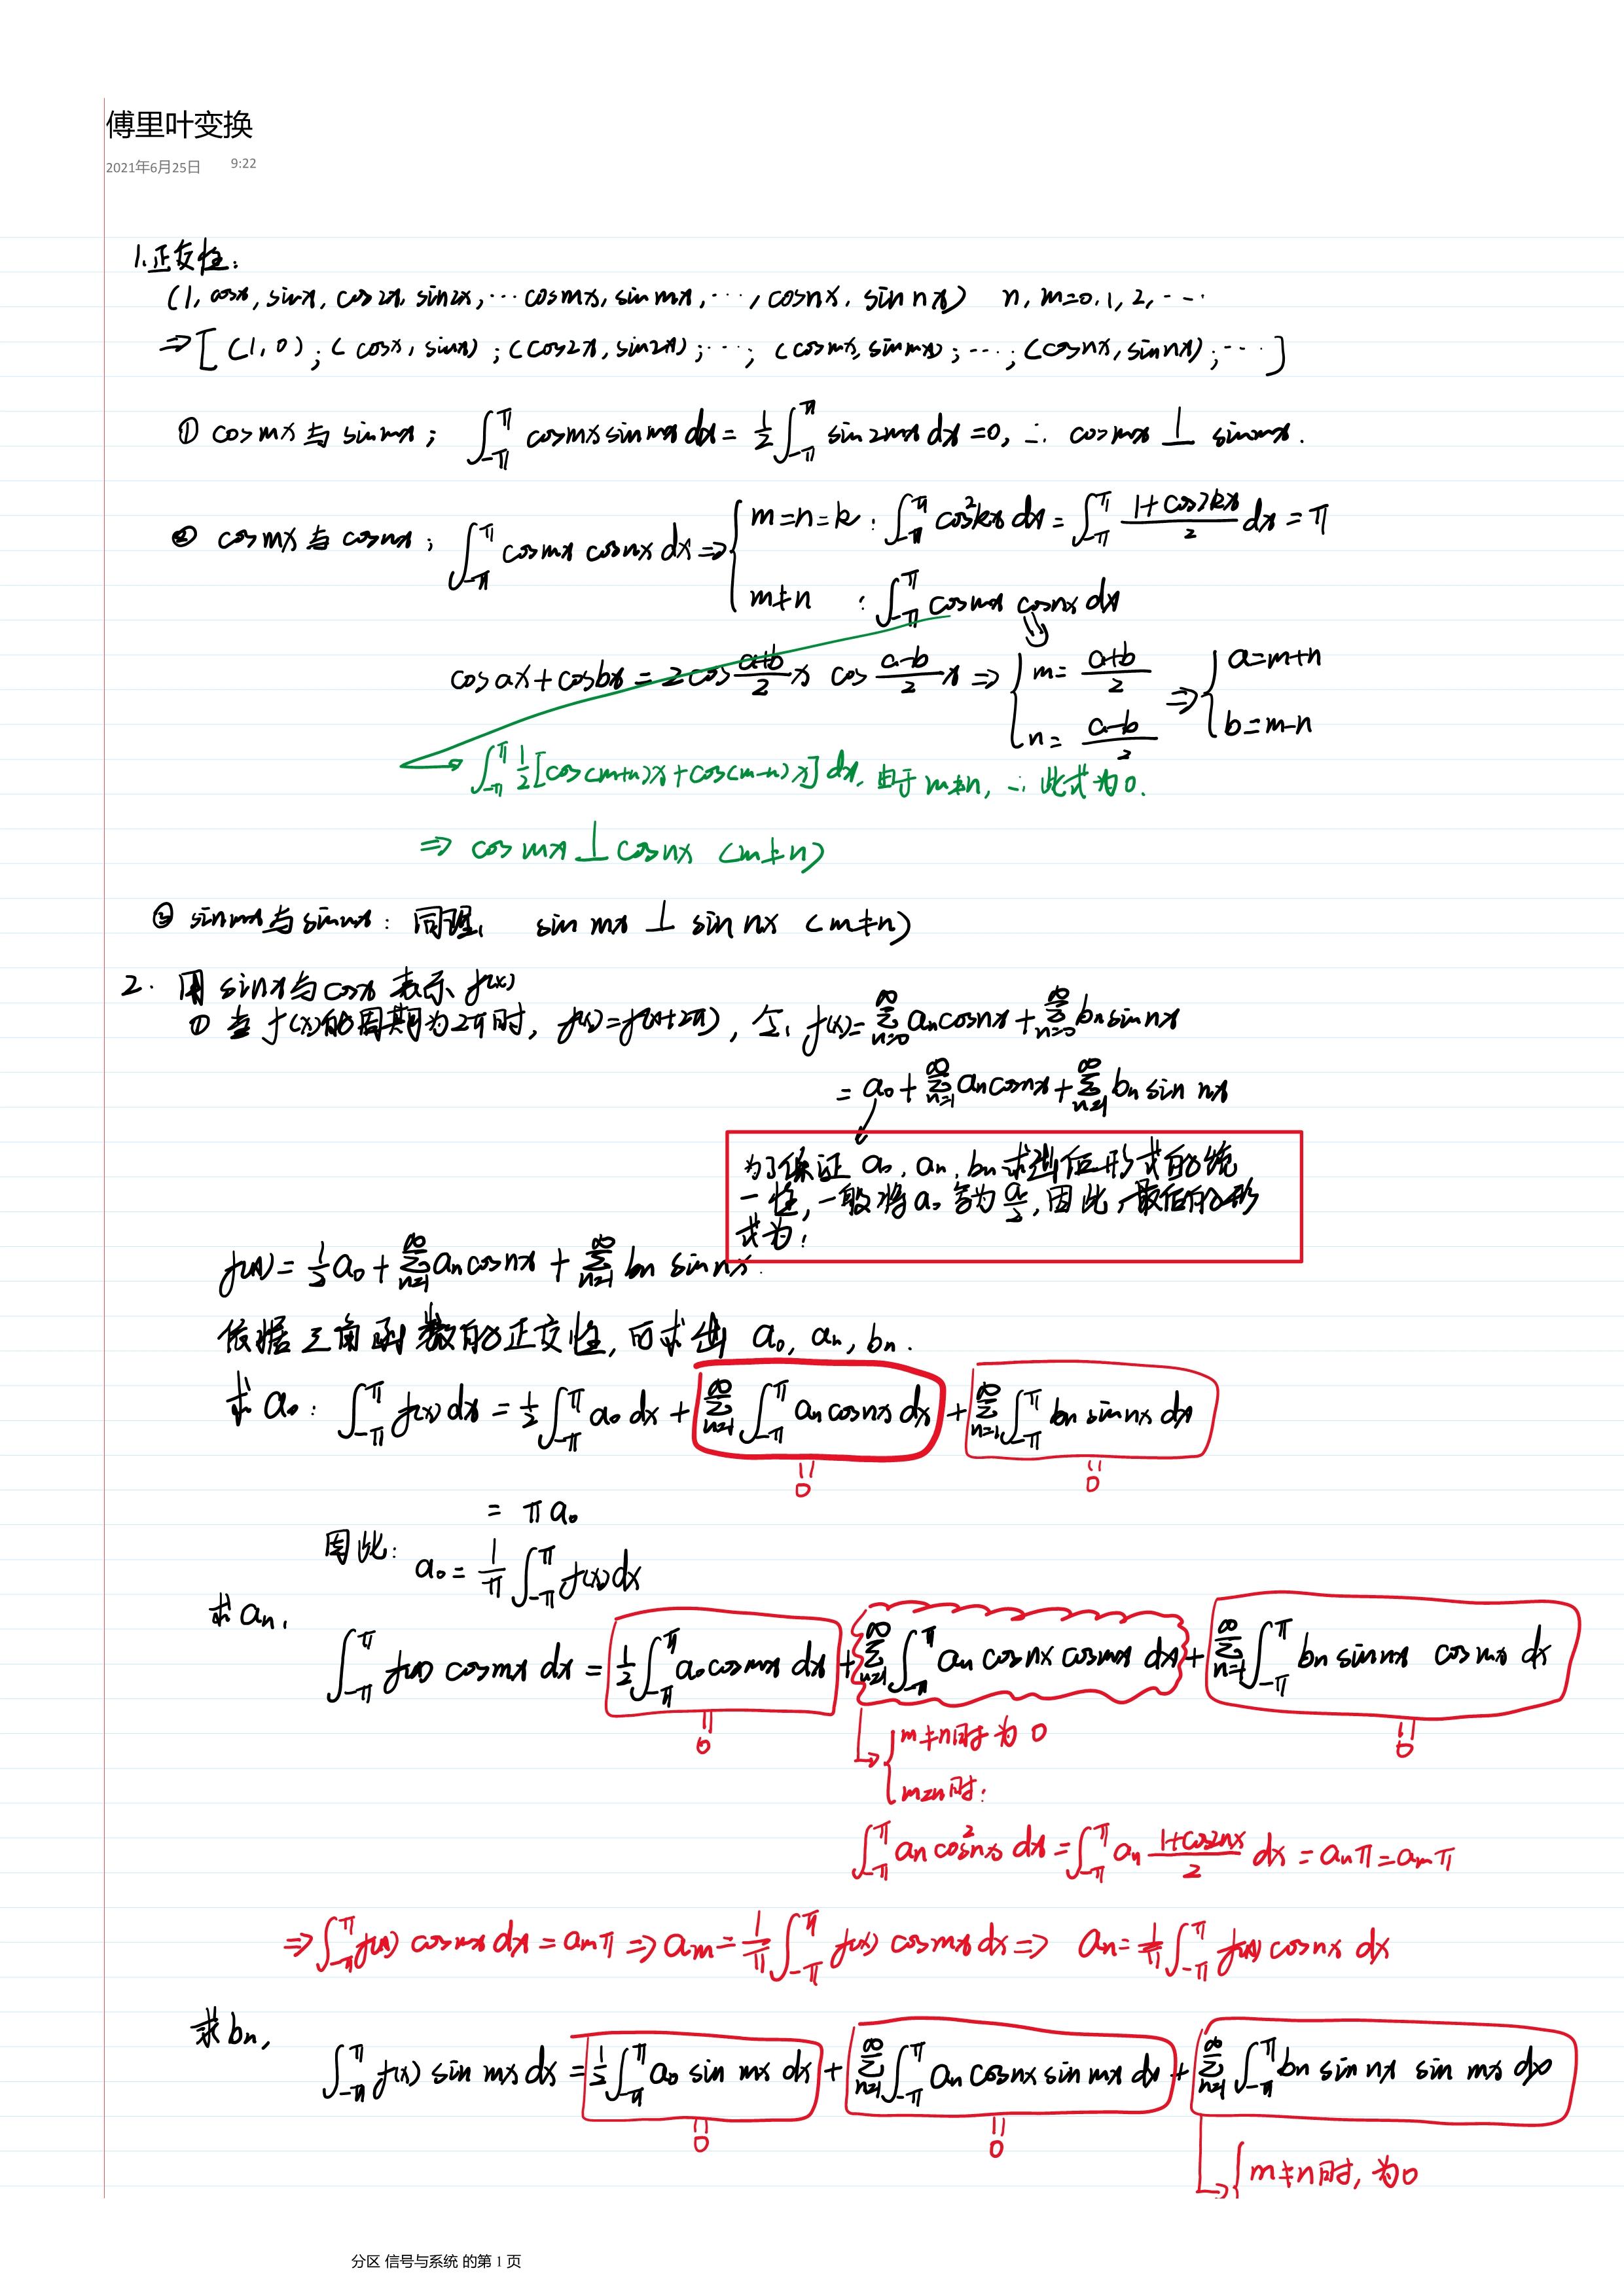 傅里叶变换
2021年6月25日 9:22
1.正交性:
(1, cosx, sinx, cos2x, sin2x, … cosmx, sinmx, …, cosnx, sin nx) n, m=0, 1, 2, …
⇒[ (1, 0); (cosx, sinx); (cos2x, sin2x); …; (cosmx, sinmx); …; (cosnx, sinnx); … ]
① cosmx与sinmx; ∫_{-π}^{π} cosmx sinmx dx = 1/2 ∫_{-π}^{π} sin2mx dx = 0, ∴ cosmx ⊥ sinmx.
② cosmx与cosnx; ∫_{-π}^{π} cosmx cosnx dx ⇒ { m=n=k : ∫_{-π}^{π} cos²kx dx = ∫_{-π}^{π} (1+cos2kx)/2 dx = π
m≠n : ∫_{-π}^{π} cosmx cosnx dx
⇓
cosax+cosbx = 2cos (a+b)/2 x cos (a-b)/2 x ⇒ { m = (a+b)/2 , n = (a-b)/2 ⇒ { a=m+n , b=m-n
∫_{-π}^{π} 1/2 [cos(m+n)x+cos(m-n)x] dx, 由于m≠n, ∴ 此式为0.
⇒ cosmx ⊥ cosnx (m≠n)
③ sinmx与sinnx: 同理, sin mx ⊥ sin nx (m≠n)
2. 用sinx与cosx表示f(x)
① 当f(x)的周期为2π时, f(x)=f(x+2π), 令, f(x)=∑_{n=0}^{∞} an cosnx + ∑_{n=0}^{∞} bn sinnx
= a₀ + ∑_{n=1}^{∞} an cosnx + ∑_{n=1}^{∞} bn sin nx
为了保证 a₀, an, bn求出后形式的统
一性, 一般将a₀写为a₀/2, 因此, 最后的形
式为:
f(x) = 1/2 a₀ + ∑_{n=1}^{∞} an cosnx + ∑_{n=1}^{∞} bn sin nx.
依据三角函数的正交性, 可求出 a₀, an, bn.
求a₀: ∫_{-π}^{π} f(x) dx = 1/2 ∫_{-π}^{π} a₀ dx + ∑_{n=1}^{∞} ∫_{-π}^{π} an cosnx dx + ∑_{n=1}^{∞} ∫_{-π}^{π} bn sinnx dx
0 0
= πa₀
因此: a₀ = 1/π ∫_{-π}^{π} f(x) dx
求an,
∫_{-π}^{π} f(x) cosmx dx = 1/2 ∫_{-π}^{π} a₀ cosmx dx + ∑_{n=1}^{∞} ∫_{-π}^{π} an cosnx cosmx dx + ∑_{n=1}^{∞} ∫_{-π}^{π} bn sinnx cosmx dx
0 0
{ m≠n时为0
m=n时:
∫_{-π}^{π} an cos²nx dx = ∫_{-π}^{π} an (1+cos2nx)/2 dx = anπ = amπ
⇒ ∫_{-π}^{π} f(x) cosmx dx = amπ ⇒ am = 1/π ∫_{-π}^{π} f(x) cosmx dx ⇒ an = 1/π ∫_{-π}^{π} f(x) cosnx dx
求bn,
∫_{-π}^{π} f(x) sin mx dx = 1/2 ∫_{-π}^{π} a₀ sin mx dx + ∑_{n=1}^{∞} ∫_{-π}^{π} an cosnx sin mx dx + ∑_{n=1}^{∞} ∫_{-π}^{π} bn sin nx sin mx dx
0 0
{ m≠n时, 为0
分区 信号与系统 的第 1 页